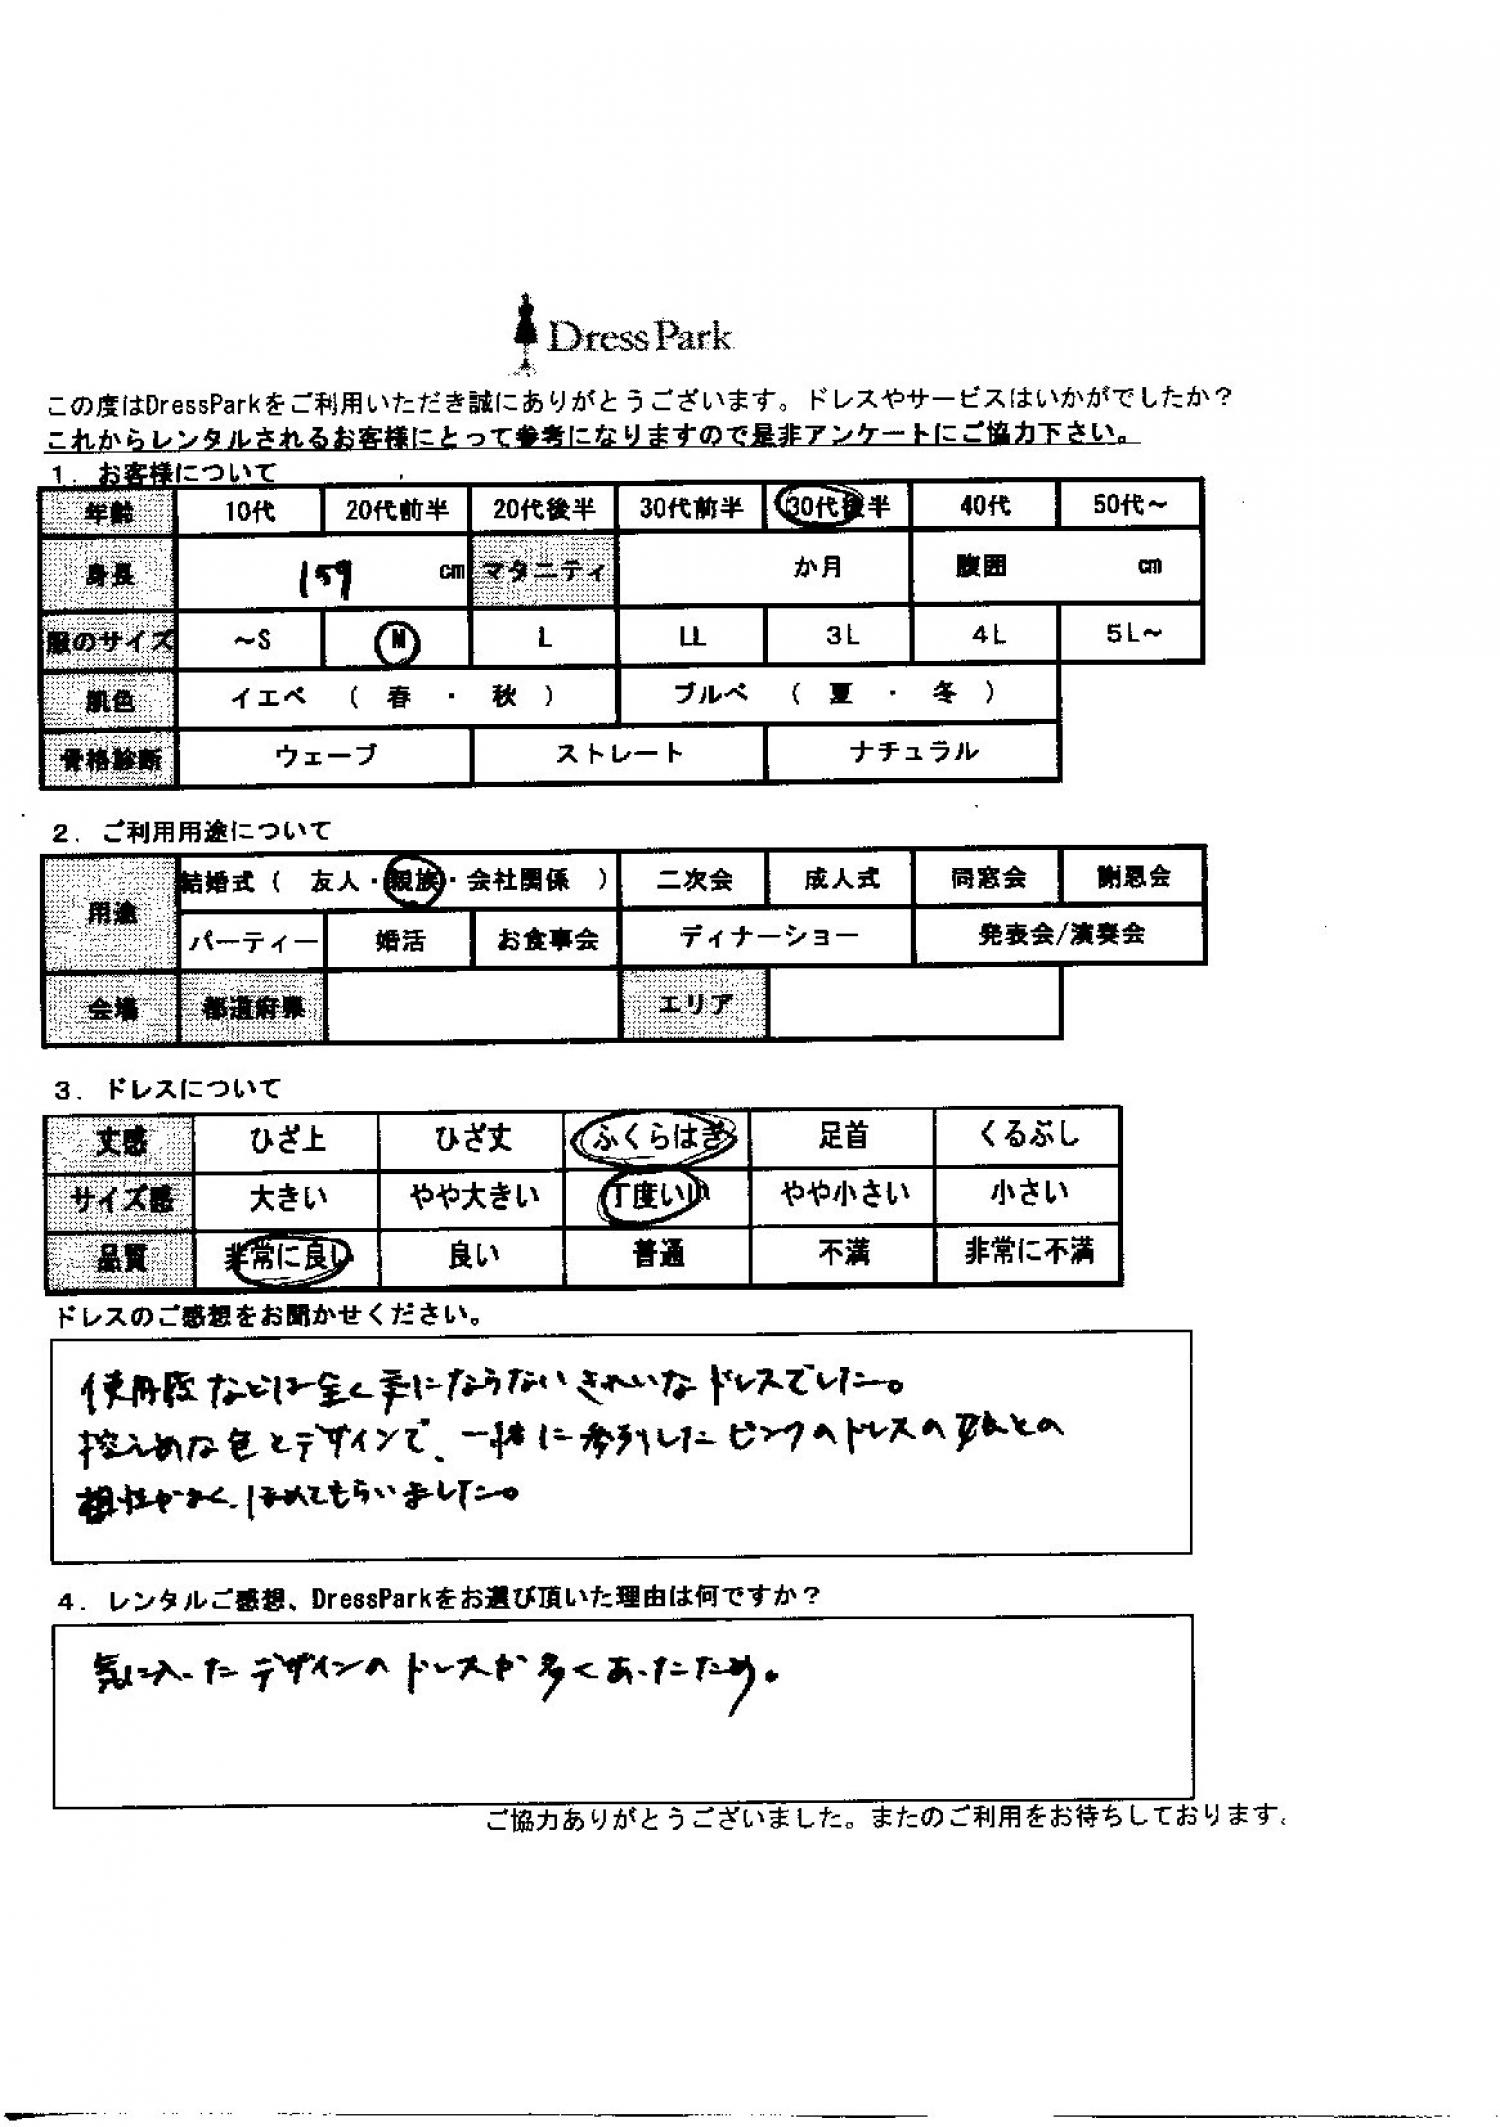 Dress Park
この度はDressParkをご利用いただき誠にありがとうございます。ドレスやサービスはいかがでしたか？
これからレンタルされるお客様にとって参考になりますので是非アンケートにご協力下さい。
1. お客様について
年齢 10代 20代前半 20代後半 30代前半 30代後半 40代 50代～
身長 159 cm マタニティ か月 腹囲 cm
服のサイズ ～S M L LL 3L 4L 5L～
肌色 イエベ （ 春 ・ 秋 ） ブルベ （ 夏 ・ 冬 ）
骨格診断 ウェーブ ストレート ナチュラル
2. ご利用用途について
用途 結婚式（ 友人・親族・会社関係 ） 二次会 成人式 同窓会 謝恩会
パーティー 婚活 お食事会 ディナーショー 発表会/演奏会
会場 都道府県 エリア
3. ドレスについて
丈感 ひざ上 ひざ丈 ふくらはぎ 足首 くるぶし
サイズ感 大きい やや大きい 丁度いい やや小さい 小さい
品質 非常に良い 良い 普通 不満 非常に不満
ドレスのご感想をお聞かせください。
使用感などは全く気にならないきれいなドレスでした。
控えめな色とデザインで、一緒に参列したピンクのドレスの娘との
相性がよく、ほめてもらいました。
4. レンタルご感想、DressParkをお選び頂いた理由は何ですか？
気に入ったデザインのドレスが多くあったため。
ご協力ありがとうございました。またのご利用をお待ちしております。